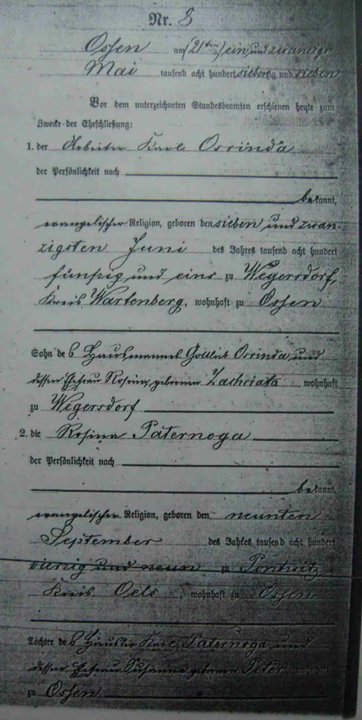 Nr. 8
Ossen am (21ten) ein und zwanzigsten
Mai tausend acht hundert siebenzig und sieben
Vor dem unterzeichneten Standesbeamten erschienen heute zum
Zwecke der Eheschließung:
1. der Arbeiter Karl Osrinda
der Persönlichkeit nach
bekannt,
evangelischer Religion, geboren den sieben und zwan-
zigsten Juni des Jahres tausend acht hundert
fünfzig und eins zu Wegersdorf,
Kreis Wartenberg, wohnhaft zu Ossen
Sohn des Hausmanns Gottlieb Osrinda und
dessen Ehefrau Rosina, geborene Zachriata wohnhaft
zu Wegersdorf
2. die Rosina Paternoga
der Persönlichkeit nach
bekannt,
evangelischer Religion, geboren den neunten
September des Jahres tausend acht hundert
vierzig und neun zu Pontwitz
Kreis Oels, wohnhaft zu Ossen
Tochter des Häusler Karl Paternoga und
dessen Ehefrau Susanna geborene Peter wohnhaft
zu Ossen